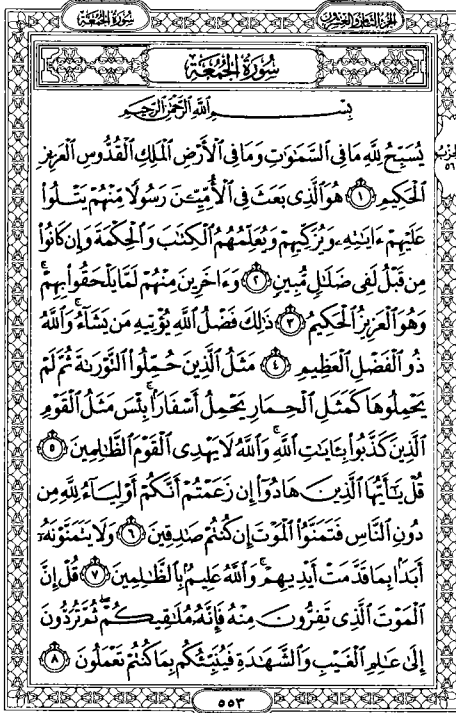 سُورَةُ الجُمُعَةِ الجُزءُ الثَّامِنُ وَالعِشرُونَ
سُورَةُ الجُمُعَةِ
بِسْمِ اللَّهِ الرَّحْمَٰنِ الرَّحِيمِ
يُسَبِّحُ لِلَّهِ مَا فِي السَّمَٰوَٰتِ وَمَا فِي الْأَرْضِ الْمَلِكِ الْقُدُّوسِ الْعَزِيزِ
الحِزْب ٥٦
الْحَكِيمِ ١ هُوَ الَّذِي بَعَثَ فِي الْأُمِّيِّـۧنَ رَسُولًا مِّنْهُمْ يَتْلُوا۟
عَلَيْهِمْ ءَايَٰتِهِۦ وَيُزَكِّيهِمْ وَيُعَلِّمُهُمُ الْكِتَٰبَ وَالْحِكْمَةَ وَإِن كَانُوا۟
مِن قَبْلُ لَفِي ضَلَٰلٍ مُّبِينٍ ٢ وَءَاخَرِينَ مِنْهُمْ لَمَّا يَلْحَقُوا۟ بِهِمْ ۚ
وَهُوَ الْعَزِيزُ الْحَكِيمُ ٣ ذَٰلِكَ فَضْلُ اللَّهِ يُؤْتِيهِ مَن يَشَآءُ ۚ وَاللَّهُ
ذُو الْفَضْلِ الْعَظِيمِ ٤ مَثَلُ الَّذِينَ حُمِّلُوا۟ التَّوْرَىٰةَ ثُمَّ لَمْ
يَحْمِلُوهَا كَمَثَلِ الْحِمَارِ يَحْمِلُ أَسْفَارًۢا ۚ بِئْسَ مَثَلُ الْقَوْمِ
الَّذِينَ كَذَّبُوا۟ بِـَٔايَٰتِ اللَّهِ ۚ وَاللَّهُ لَا يَهْدِي الْقَوْمَ الظَّٰلِمِينَ ٥
قُلْ يَٰٓأَيُّهَا الَّذِينَ هَادُوٓا۟ إِن زَعَمْتُمْ أَنَّكُمْ أَوْلِيَآءُ لِلَّهِ مِن
دُونِ النَّاسِ فَتَمَنَّوُا۟ الْمَوْتَ إِن كُنتُمْ صَٰدِقِينَ ٦ وَلَا يَتَمَنَّوْنَهُۥٓ
أَبَدًۢا بِمَا قَدَّمَتْ أَيْدِيهِمْ ۚ وَاللَّهُ عَلِيمٌۢ بِالظَّٰلِمِينَ ٧ قُلْ إِنَّ
الْمَوْتَ الَّذِي تَفِرُّونَ مِنْهُ فَإِنَّهُۥ مُلَٰقِيكُمْ ۖ ثُمَّ تُرَدُّونَ
إِلَىٰ عَٰلِمِ الْغَيْبِ وَالشَّهَٰدَةِ فَيُنَبِّئُكُم بِمَا كُنتُمْ تَعْمَلُونَ ٨
٥٥٣